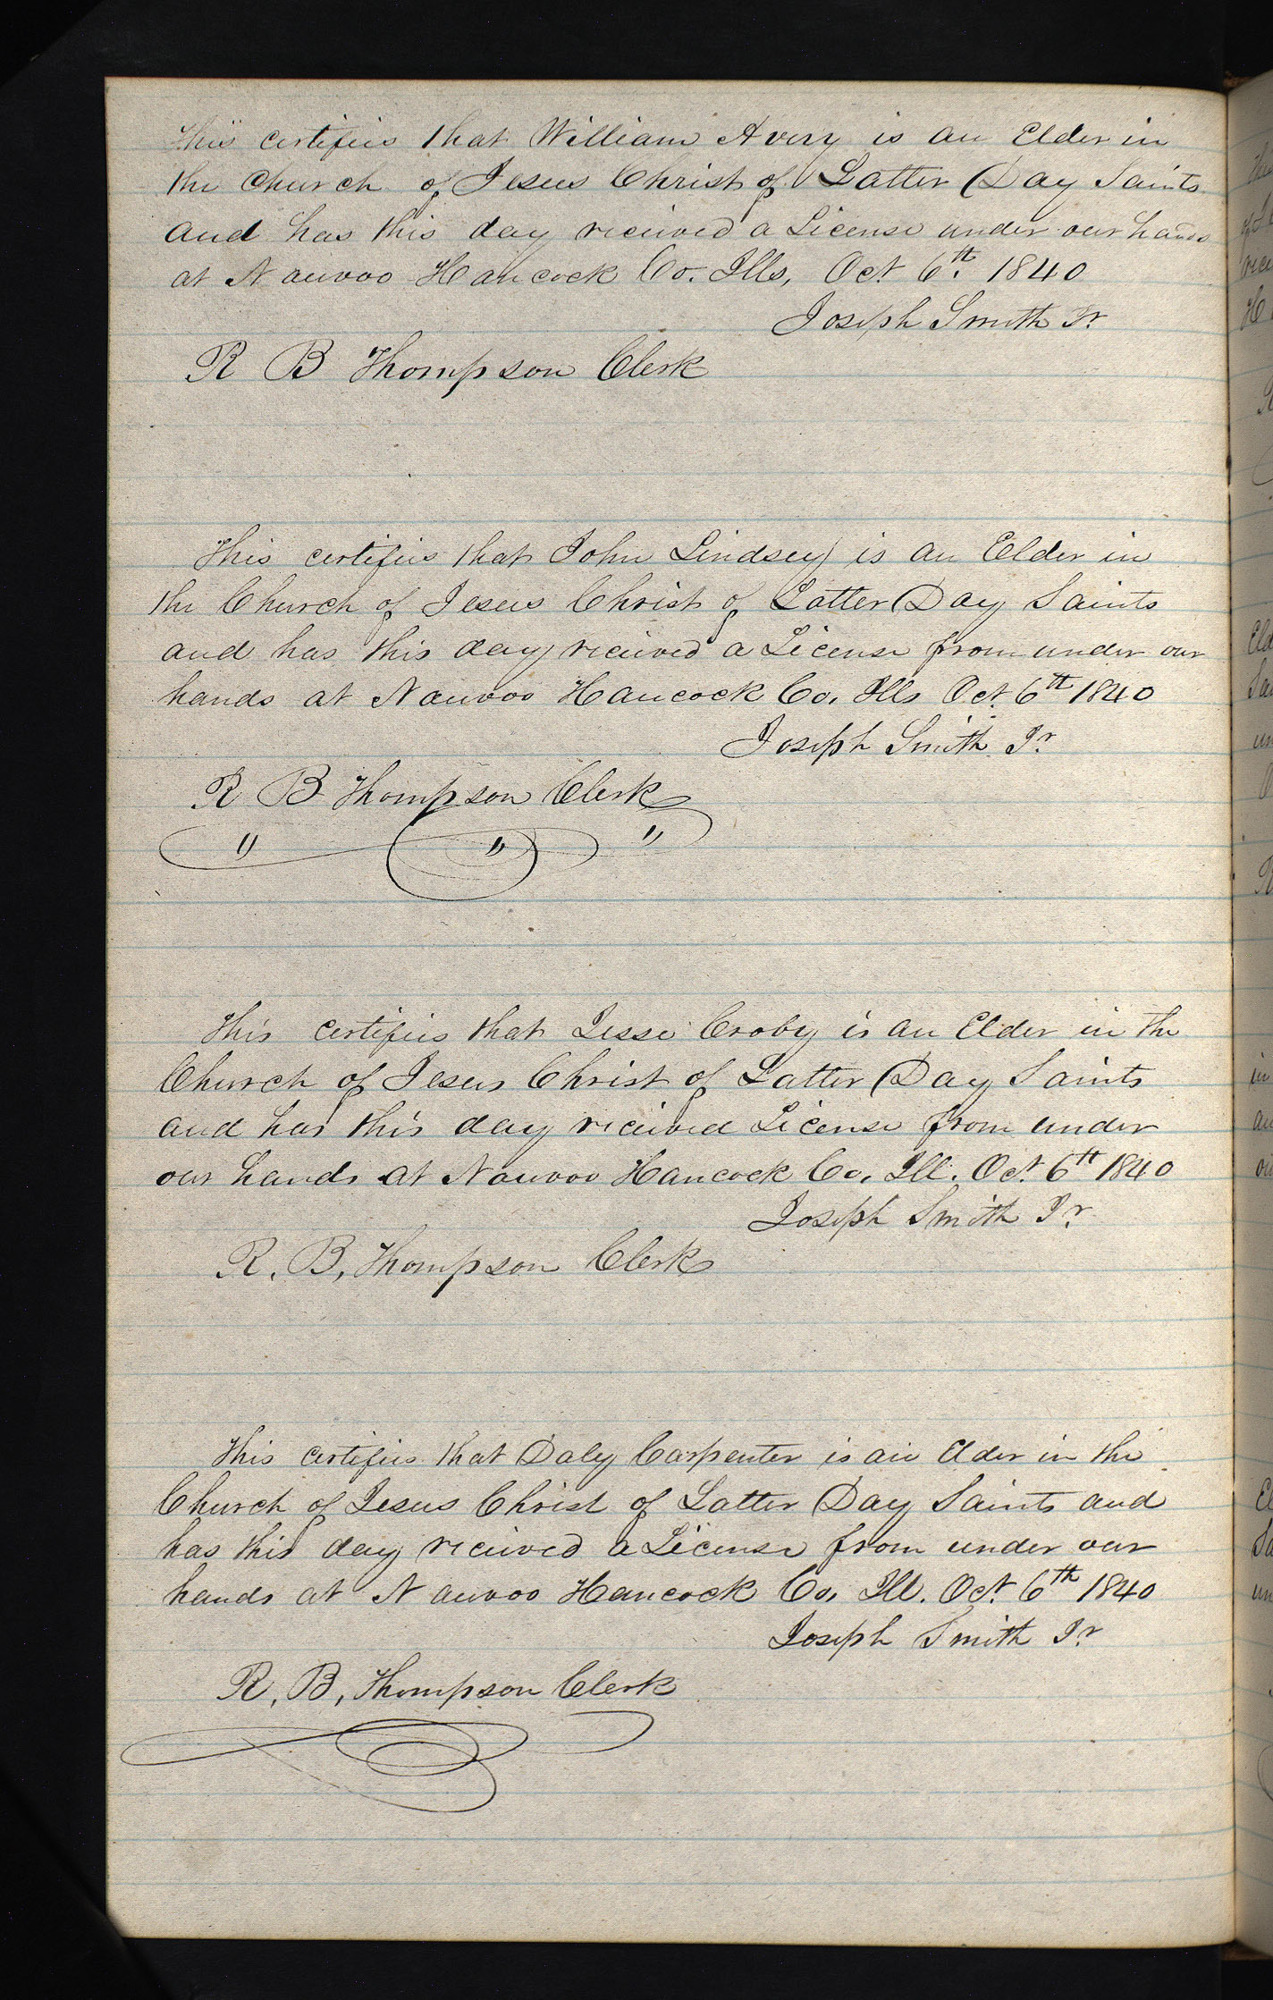 This certifies that William Avery is an Elder in
the Church of Jesus Christ of Latter Day Saints
and has this day received a License under our hands
at Nauvoo Hancock Co. Ills, Oct. 6th 1840
Joseph Smith Jr
R B Thompson Clerk
This certifies that John Lindsey is an Elder in
the Church of Jesus Christ of Latter Day Saints
and has this day received a License from under our
hands at Nauvoo Hancock Co, Ills Oct. 6th 1840
Joseph Smith Jr
R B Thompson Clerk
" " "
This certifies that Jesse Croby is an Elder in the
Church of Jesus Christ of Latter Day Saints
and has this day received License from under
our hands at Nauvoo Hancock Co, Ill. Oct. 6th 1840
Joseph Smith Jr
R. B, Thompson Clerk
This certifies that Daly Carpenter is an Elder in the
Church of Jesus Christ of Latter Day Saints and
has this day received a License from under our
hands at Nauvoo Hancock Co, Ill. Oct. 6th 1840
Joseph Smith Jr
R, B, Thompson Clerk